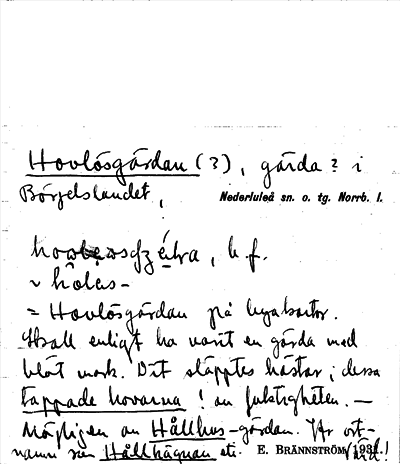 Hovlösgärdan (?), gärda? i
Börjelslandet, Nederluleå sn. o. tg. Norrb. l.
, b f.
~ hôlas-
= Hovlösgärdan på kartor.
Skall enligt ha varit en gärda med
blöt mark. Dit släpptes hästar; dessa
tappade hovarna! av fuktigheten. —
Möjligen av Hållhus-gärdan. Jfr ort-
namn som Hållhågnan etc. E. BRÄNNSTRÖM 1931.